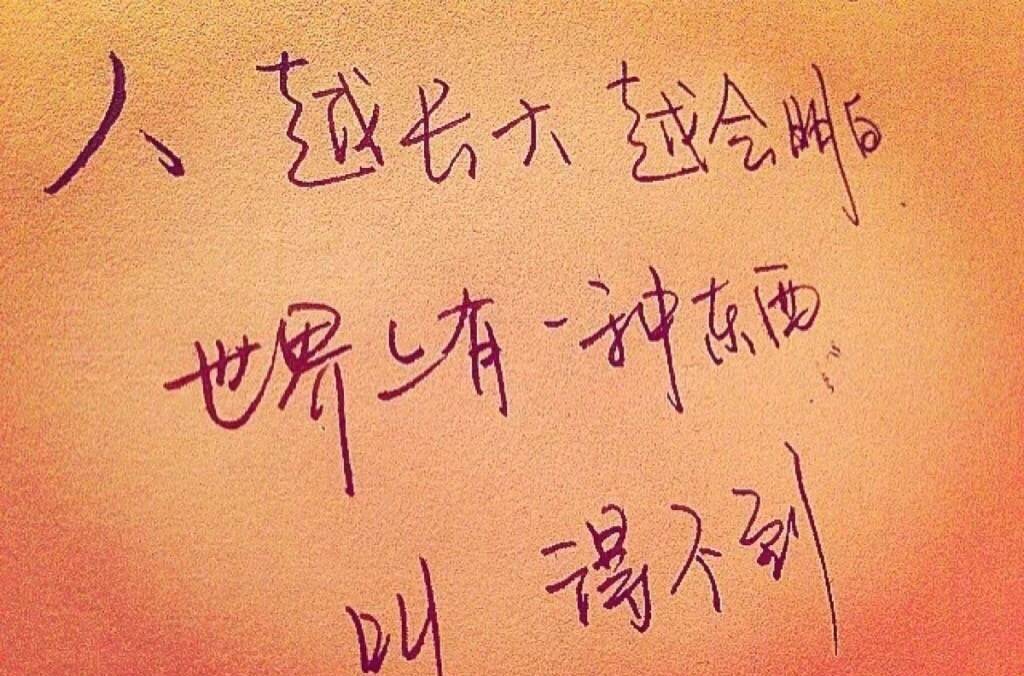 人越长大越会明白.
世界上有一种东西
叫 得不到